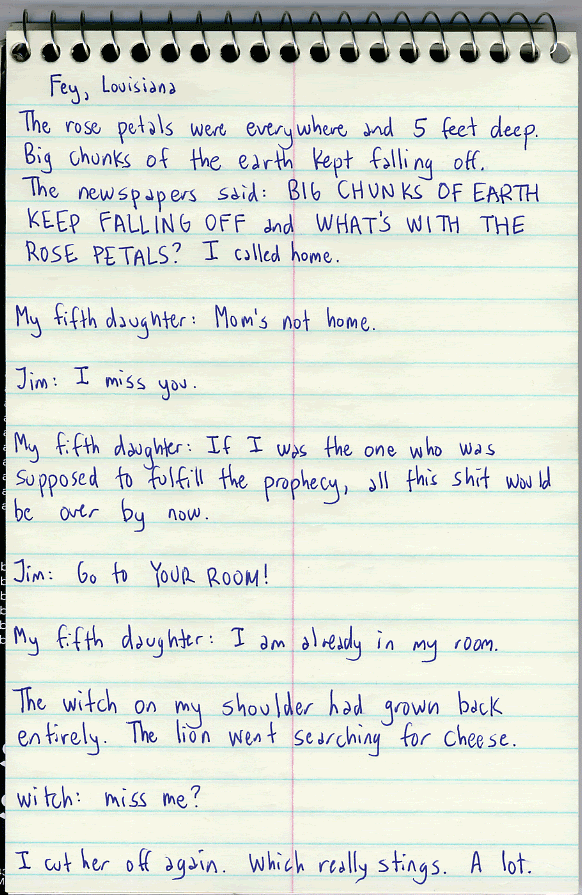 Fey, Louisiana
The rose petals were everywhere and 5 feet deep.
Big chunks of the earth kept falling off.
The newspapers said: BIG CHUNKS OF EARTH
KEEP FALLING OFF and WHAT'S WITH THE
ROSE PETALS? I called home.
My fifth daughter: Mom's not home.
Jim: I miss you.
My fifth daughter: If I was the one who was
supposed to fulfill the prophecy, all this shit would
be over by now.
Jim: Go to YOUR ROOM!
My fifth daughter: I am already in my room.
The witch on my shoulder had grown back
entirely. The lion went searching for cheese.
witch: miss me?
I cut her off again. Which really stings. A lot.